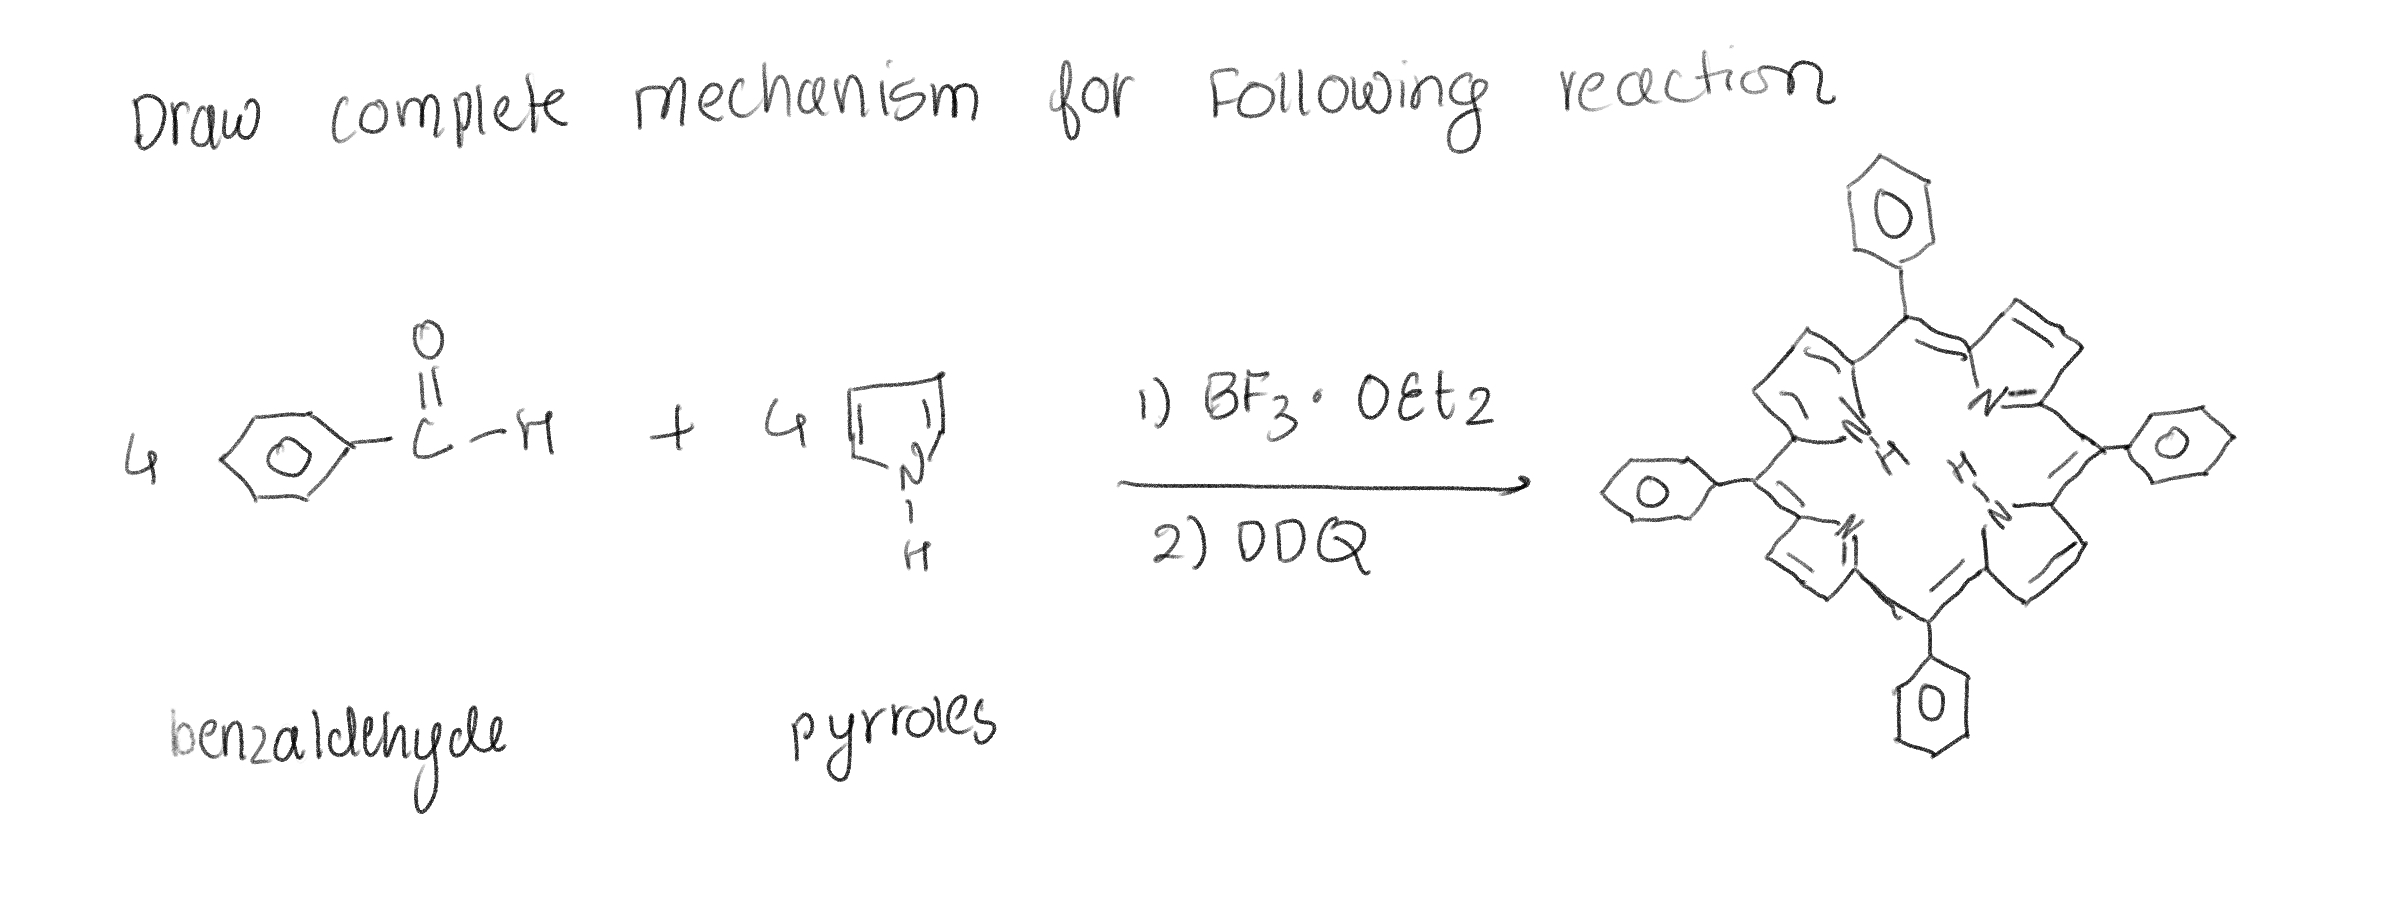 Draw complete mechanism for Following reaction
4 O C-H + 4 N H
1) BF3 · OEt2
2) DDQ
N N H H N N
benzaldehyde pyrroles